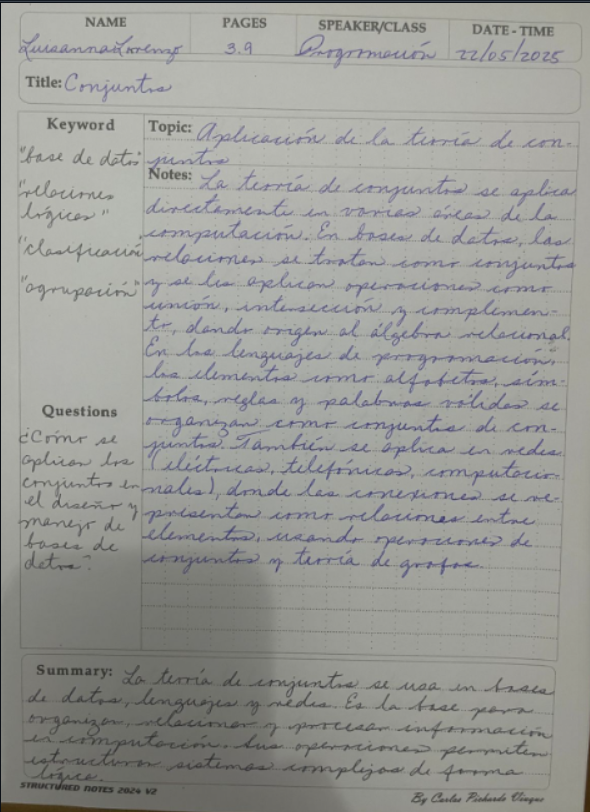 NAME PAGES SPEAKER/CLASS DATE - TIME
Luisanna Lorenzo 3.9 Programación 22/05/2025
Title: Conjuntos
Keyword
"base de datos"
"relaciones
lógicas"
"clasificación"
"agrupación"
Questions
¿Cómo se
aplican los
conjuntos en
el diseño y
manejo de
bases de
datos?
Topic: Aplicación de la teoría de con-
juntos
Notes: La teoría de conjuntos se aplica
directamente en varias áreas de la
computación. En bases de datos, las
relaciones se tratan como conjuntos
y se les aplican operaciones como
unión, intersección y complemen-
to, dando origen al álgebra relacional.
En los lenguajes de programación,
los elementos como alfabetos, sím-
bolos, reglas y palabras válidas se
organizan como conjuntos de con-
juntos. También se aplica en redes
(eléctricas, telefónicas, computacio-
nales), donde las conexiones se re-
presentan como relaciones entre
elementos, usando operaciones de
conjuntos y teoría de grafos.
Summary: La teoría de conjuntos se usa en bases
de datos, lenguajes y redes. Es la base para
organizar, relacionar y procesar información
en computación. Sus operaciones permiten
estructurar sistemas complejos de forma
lógica.
STRUCTURED NOTES 2024 V2
By Carlos Pichardo Vicioso